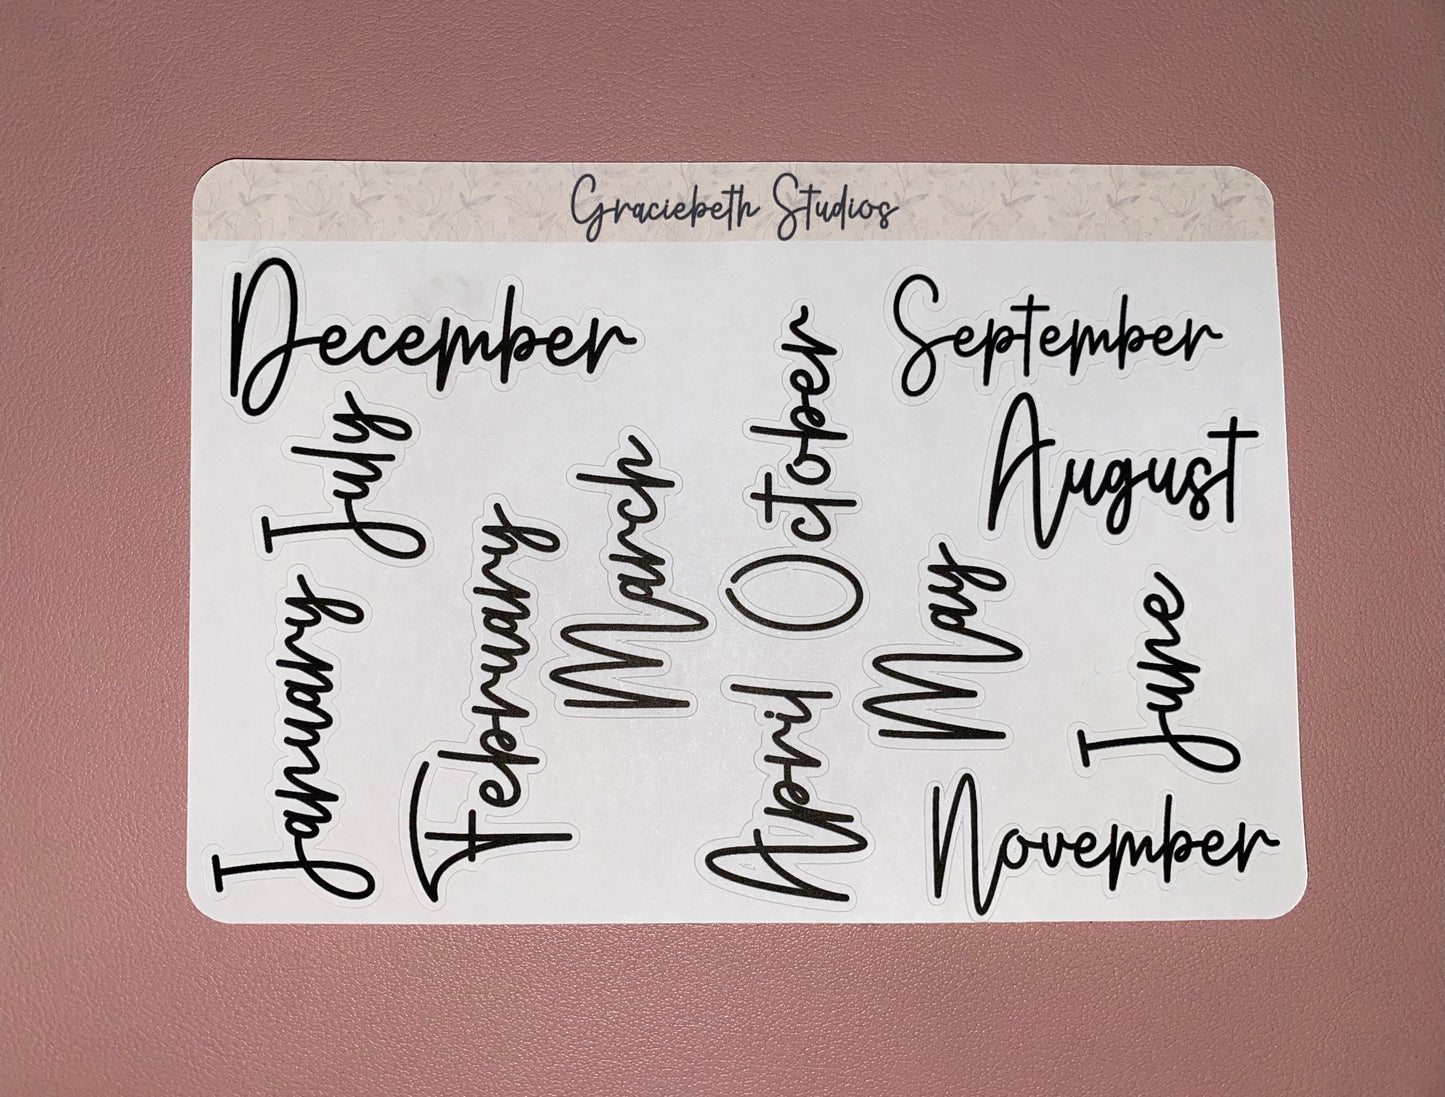 Graciebeth Studios
December
September
July
October
August
March
February
January
May
June
April
November